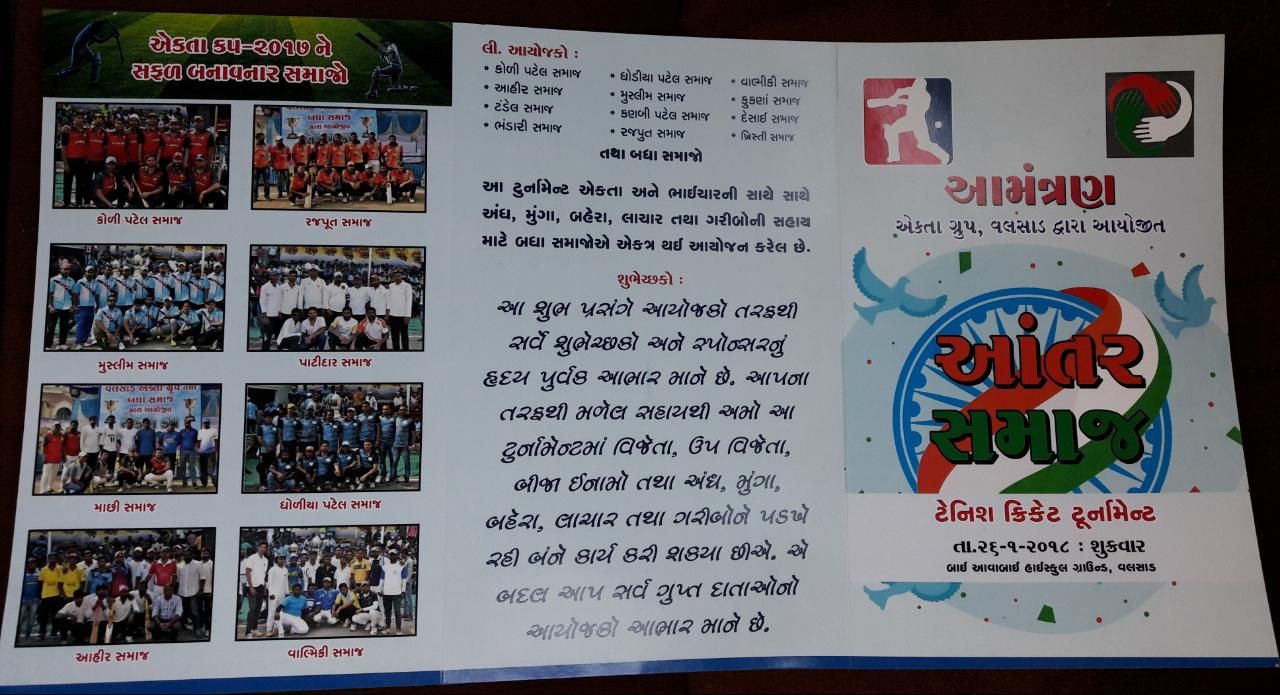 એકતા કપ-૨૦૧૭ ને
સફળ બનાવનાર સમાજો
બધા સમાજ
દ્વારા આયોજીત
કોળી પટેલ સમાજ
રજપૂત સમાજ
મુસ્લીમ સમાજ
પાટીદાર સમાજ
વલસાડ એકતા ગ્રુપ તથા
બધા સમાજ
દ્વારા આયોજીત
માછી સમાજ
ધોળીયા પટેલ સમાજ
આહીર સમાજ
વાલ્મિકી સમાજ
લી. આયોજકો :
• કોળી પટેલ સમાજ
• આહીર સમાજ
• ટંડેલ સમાજ
• ભંડારી સમાજ
• ધોડીયા પટેલ સમાજ
• મુસ્લીમ સમાજ
• કણબી પટેલ સમાજ
• રજપુત સમાજ
• વાલ્મીકી સમાજ
• કુકણાં સમાજ
• દેસાઈ સમાજ
• ખ્રિસ્તી સમાજ
તથા બધા સમાજો
આ ટુર્નામેન્ટ એકતા અને ભાઈચારની સાથે સાથે
અંધ, મુંગા, બહેરા, લાચાર તથા ગરીબોની સહાય
માટે બધા સમાજોએ એકત્ર થઈ આયોજન કરેલ છે.
શુભેચ્છકો :
આ શુભ પ્રસંગે આયોજકો તરફથી
સર્વે શુભેચ્છકો અને સ્પોન્સરનું
હૃદય પુર્વક આભાર માને છે. આપના
તરફથી મળેલ સહાયથી અમો આ
ટુર્નામેન્ટમાં વિજેતા, ઉપ વિજેતા,
બીજા ઈનામો તથા અંધ, મુંગા,
બહેરા, લાચાર તથા ગરીબોને પડખે
રહી બંને કાર્ય કરી શકયા છીએ. એ
બદલ આપ સર્વ ગુપ્ત દાતાઓનો
આયોજકો આભાર માને છે.
આમંત્રણ
એકતા ગ્રુપ, વલસાડ દ્વારા આયોજીત
આંતર
સમાજ
ટેનિશ ક્રિકેટ ટૂર્નામેન્ટ
તા.૨૬-૧-૨૦૧૮ : શુક્રવાર
બાઈ આવાબાઈ હાઈસ્કુલ ગ્રાઉન્ડ, વલસાડ